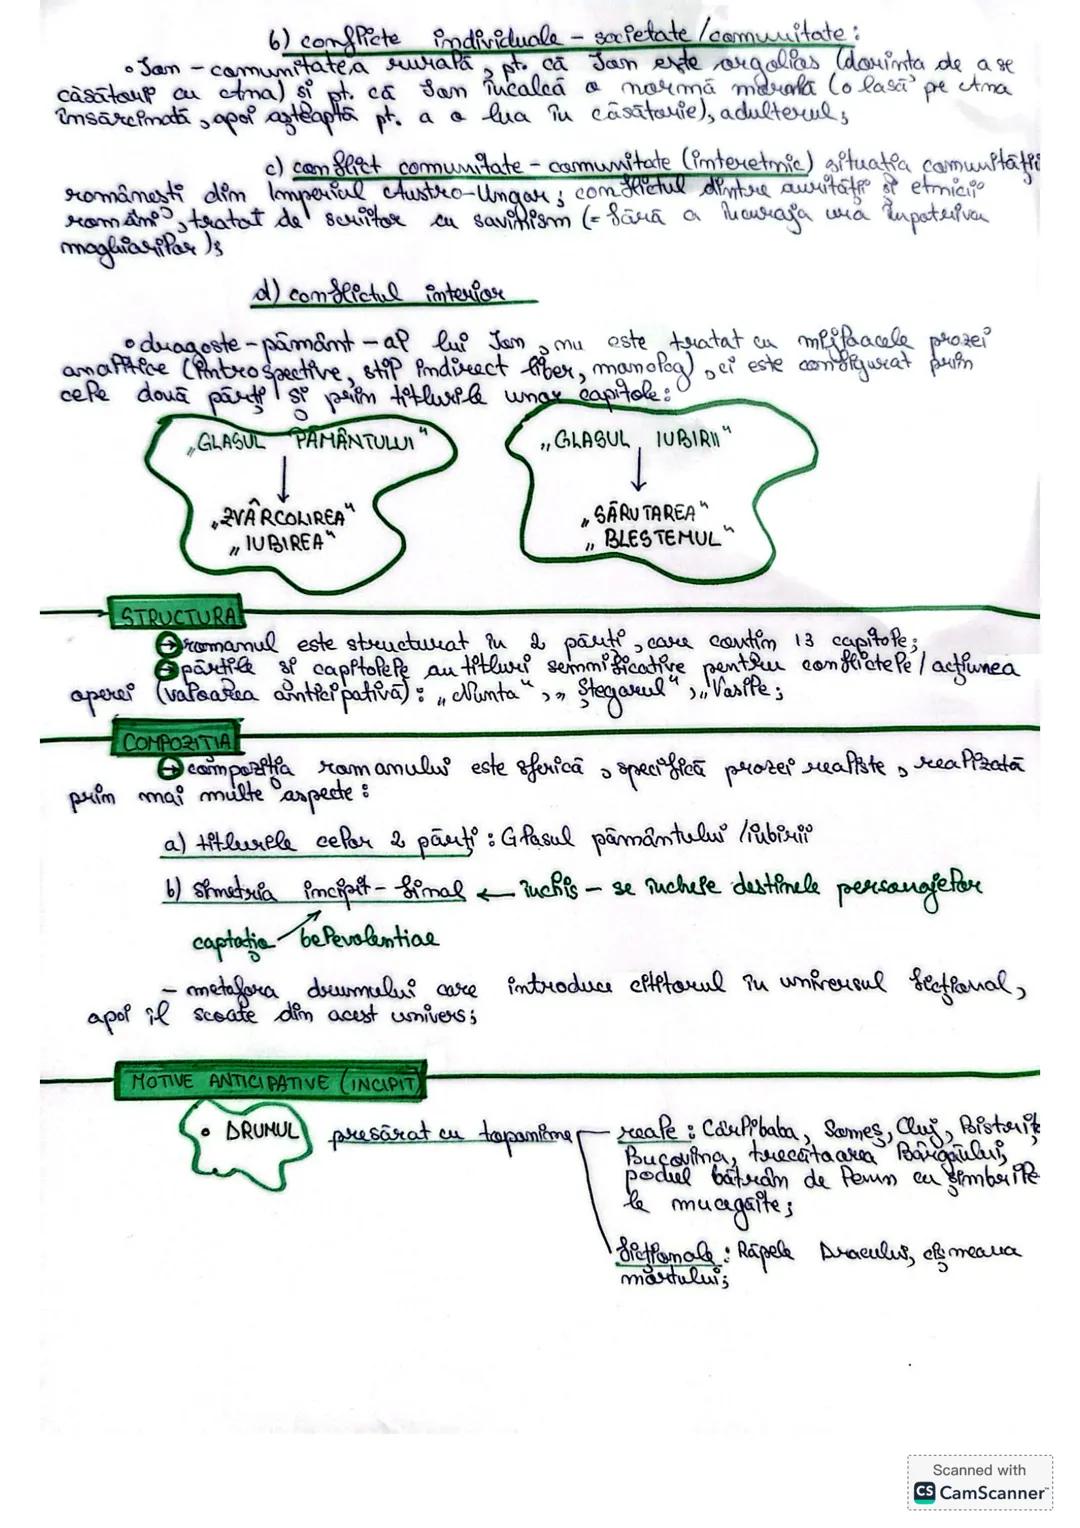 b) conflicte individuale - societate / comunitate:
• Ion - comunitatea rurală, pt. că Ion este orgolios (dorința de a se
căsători cu Ana) și pt. că Ion încalcă o normă morală (o lasă pe Ana
însărcinată, apoi așteaptă pt. a o lua în căsătorie), adulterul;
c) conflict comunitate - comunitate (interetnic) situația comunității
românești din Imperiul Austro-Ungar; conflictul dintre autorități și etnicii
români, tratat de scriitor cu savinism (= fără a încuraja ura împotriva
maghiarilor);
d) conflictul interior
• dragoste - pământ - al lui Ion, nu este tratat cu mijloacele prozei
analitice (introspective, stil indirect liber, monolog), ci este configurat prin
cele două părți și prin titlurile unor capitole:
„GLASUL PĂMÂNTULUI"
↓
„ZVÂRCOLIREA"
„IUBIREA"
„GLASUL IUBIRII"
↓
„SĂRUTAREA"
„BLESTEMUL"
STRUCTURA
→ romanul este structurat în 2 părți, care conțin 13 capitole;
→ părțile și capitolele au titluri semnificative pentru conflictele / acțiunea
operei (valoarea anticipativă): „Nunta", „Ștegarul", „Vasile;
COMPOZIȚIA
→ compoziția romanului este sferică, specifică prozei realiste, realizată
prin mai multe aspecte:
a) titlurile celor 2 părți: Glasul pământului /iubirii
b) simetria incipit - final ← închis - se închele destinele personajelor
captatio belevolentiae
- metafora drumului care introduce cititorul în universul ficțional,
apoi îl scoate din acest univers;
MOTIVE ANTICIPATIVE (INCIPIT)
• DRUMUL presărat cu toponime
reale: Cârlibaba, Someș, Cluj, Bistrit
Bucovina, trecătoarea Bârgăului,
podul bătrân de lemn cu șindrile
le mucegăite;
ficționale: Râpele Dracului, cișmeaua
mortului;
Scanned with
CS CamScanner